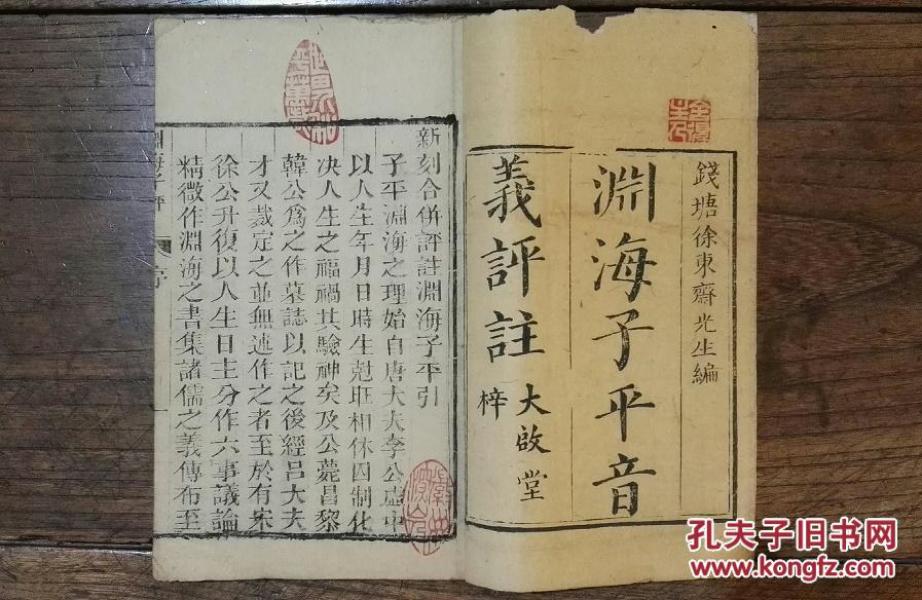 錢塘徐東齋先生編
淵海子平音
義評註
大啟堂
梓
新刻合併評註淵海子平引
子平淵海之理始自唐大夫李公虛中
以人生年月日時生尅旺相休囚制化
决人生之禍福其驗神矣及公薨昌黎
韓公爲之作墓誌以記之後經呂大夫
才又裁定之並無述作之者至於有宋
徐公升復以人生日主分作六事議論
精微作淵海之書集諸儒之義傳布至
淵海子平
序
一
孔夫子旧书网
www.kongfz.com